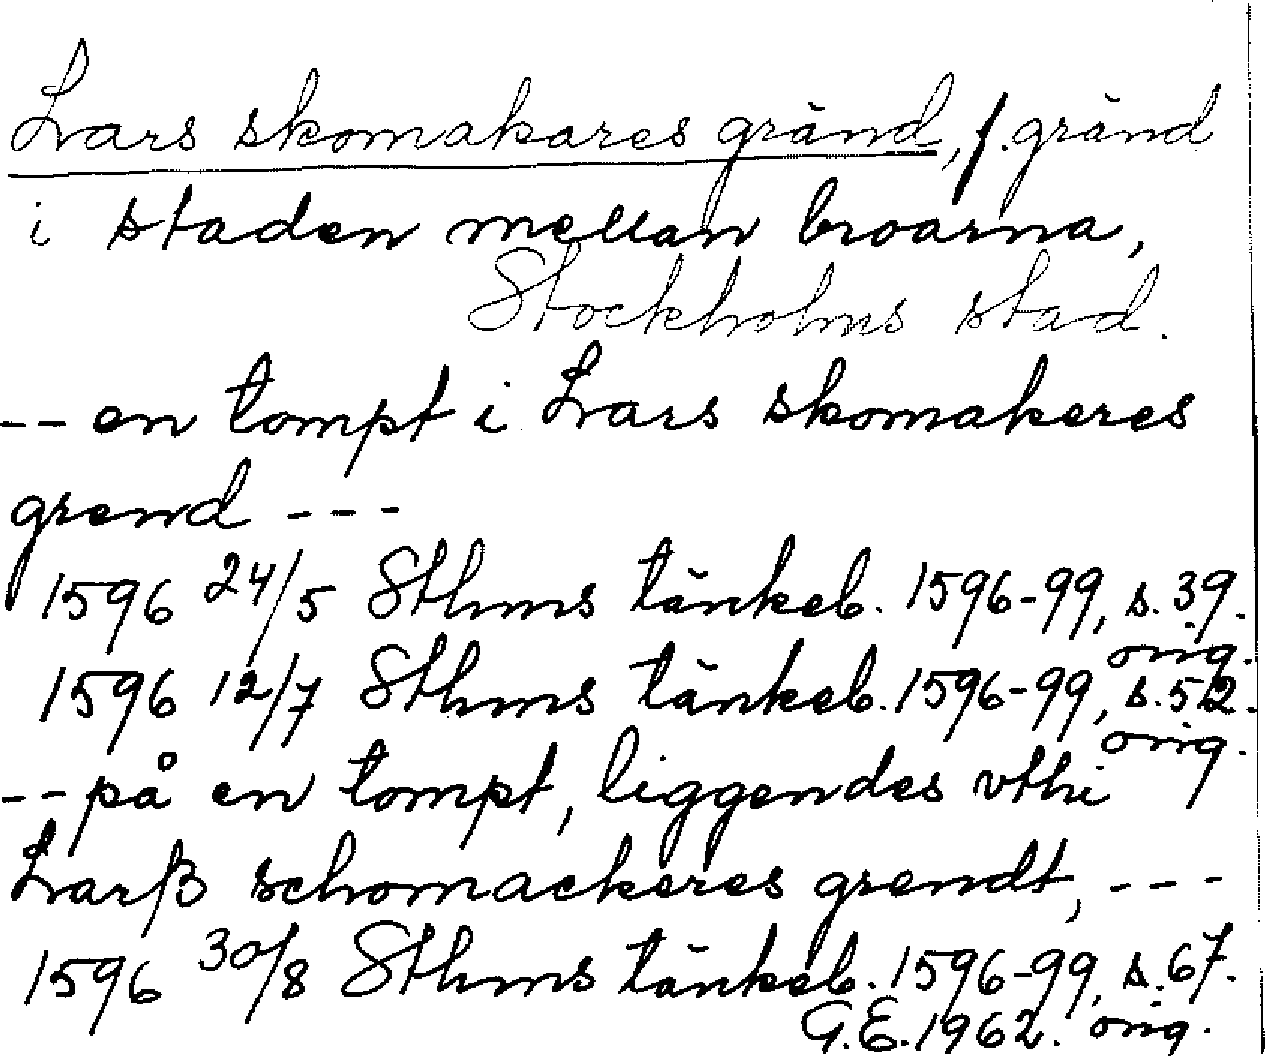 Lars skomakares gränd, f. gränd
i staden mellan broarna,
Stockholms stad.
-- en tompt i Lars skomakeres
grend ---
1596 24/5 Sthms tänkeb. 1596-99, s. 39.
orig.
1596 12/7 Sthms tänkeb. 1596-99, s. 52.
orig.
-- på en tompt, liggendes vthi
Larß schomackeres grendt, ---
1596 30/8 Sthms tänkeb. 1596-99, s. 67.
G.E. 1962. orig.